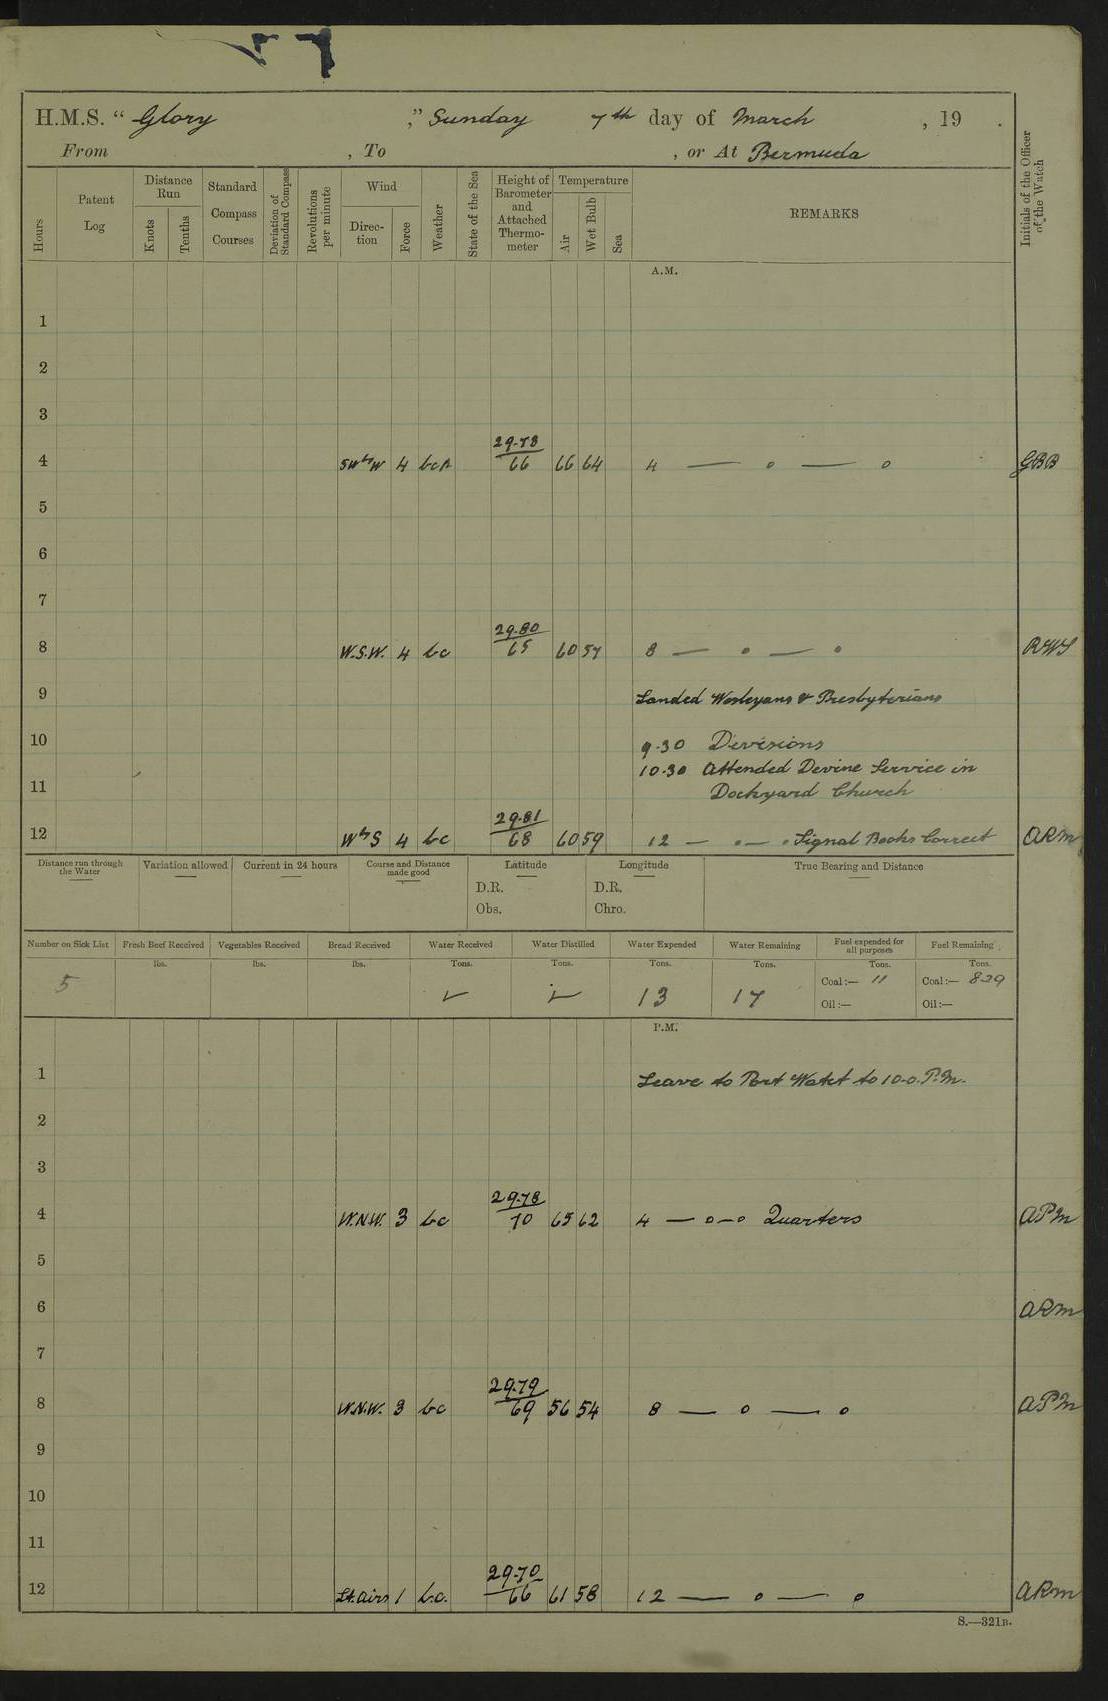 H.M.S. “ Glory ,” Sunday 7th day of March , 19 .
From , To , or At Bermuda
Hours
Patent Log
Distance Run
Knots
Tenths
Standard Compass Courses
Deviation of Standard Compass
Revolutions per minute
Wind
Direction
Force
Weather
State of the Sea
Height of Barometer and Attached Thermometer
Temperature
Air
Wet Bulb
Sea
REMARKS
Initials of the Officer of the Watch
A.M.
1
2
3
29.78
4 SWbyW 4 66 66 64 4 — o — o GBB
5
6
7
29.80
8 W.S.W. 4 bc 65 60 57 8 — o — o RWS
9 Landed Wesleyans & Presbyterians
10 9.30 Devisions
10.30 Attended Devine Service in
11 Dockyard Church
29.81
12 WbyS 4 bc 68 60 59 12 — o — o Signal Books Correct ARM
Distance run through the Water
Variation allowed
Current in 24 hours
Course and Distance made good
Latitude
D.R.
Obs.
Longitude
D.R.
Chro.
True Bearing and Distance
Number on Sick List Fresh Beef Received Vegetables Received Bread Received Water Received Water Distilled Water Expended Water Remaining Fuel expended for all purposes Fuel Remaining
lbs. lbs. lbs. Tons. Tons. Tons. Tons. Tons. Tons.
5 13 17 Coal:— 11 Coal:— 829
Oil:— Oil:—
P.M.
1 Leave to Port Watct to 10.0. P.M.
2
3
29.78
4 W.N.W. 3 bc 70 65 62 4 — o — o Quarters APM
5
6 ARM
7
29.79
8 W.N.W. 3 bc 69 56 54 8 — o — o APM
9
10
11
29.70
12 Lt. airs 1 b.c. 66 61 58 12 — o — o ARM
S.—321B.